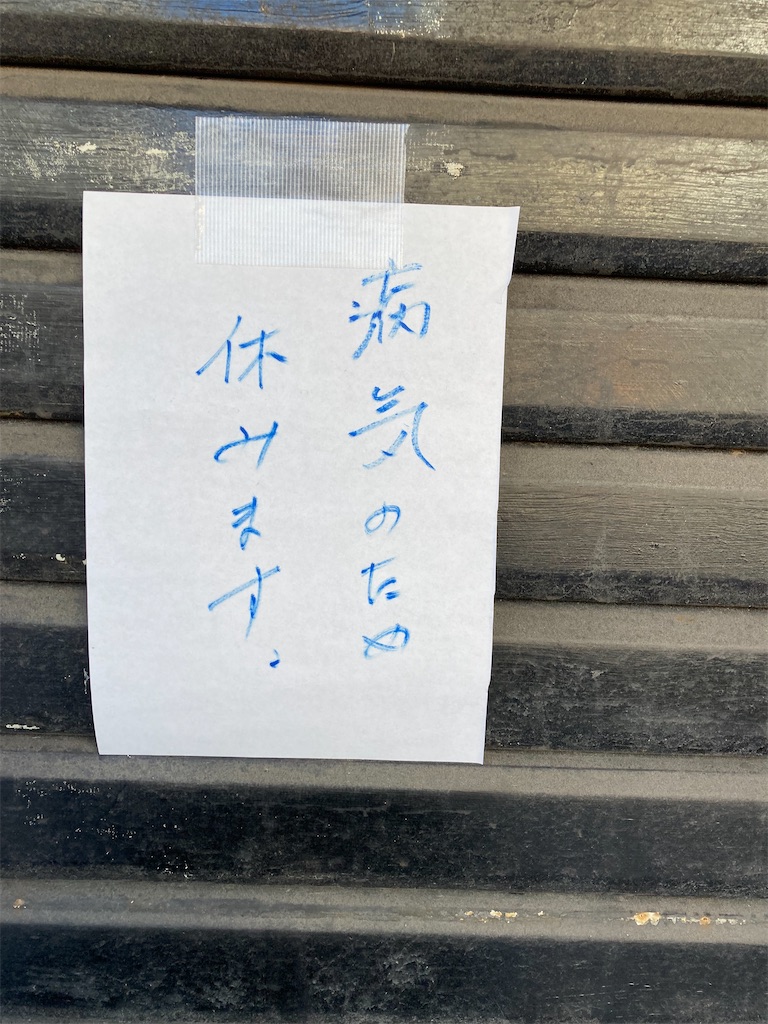 病気のため
休みます。